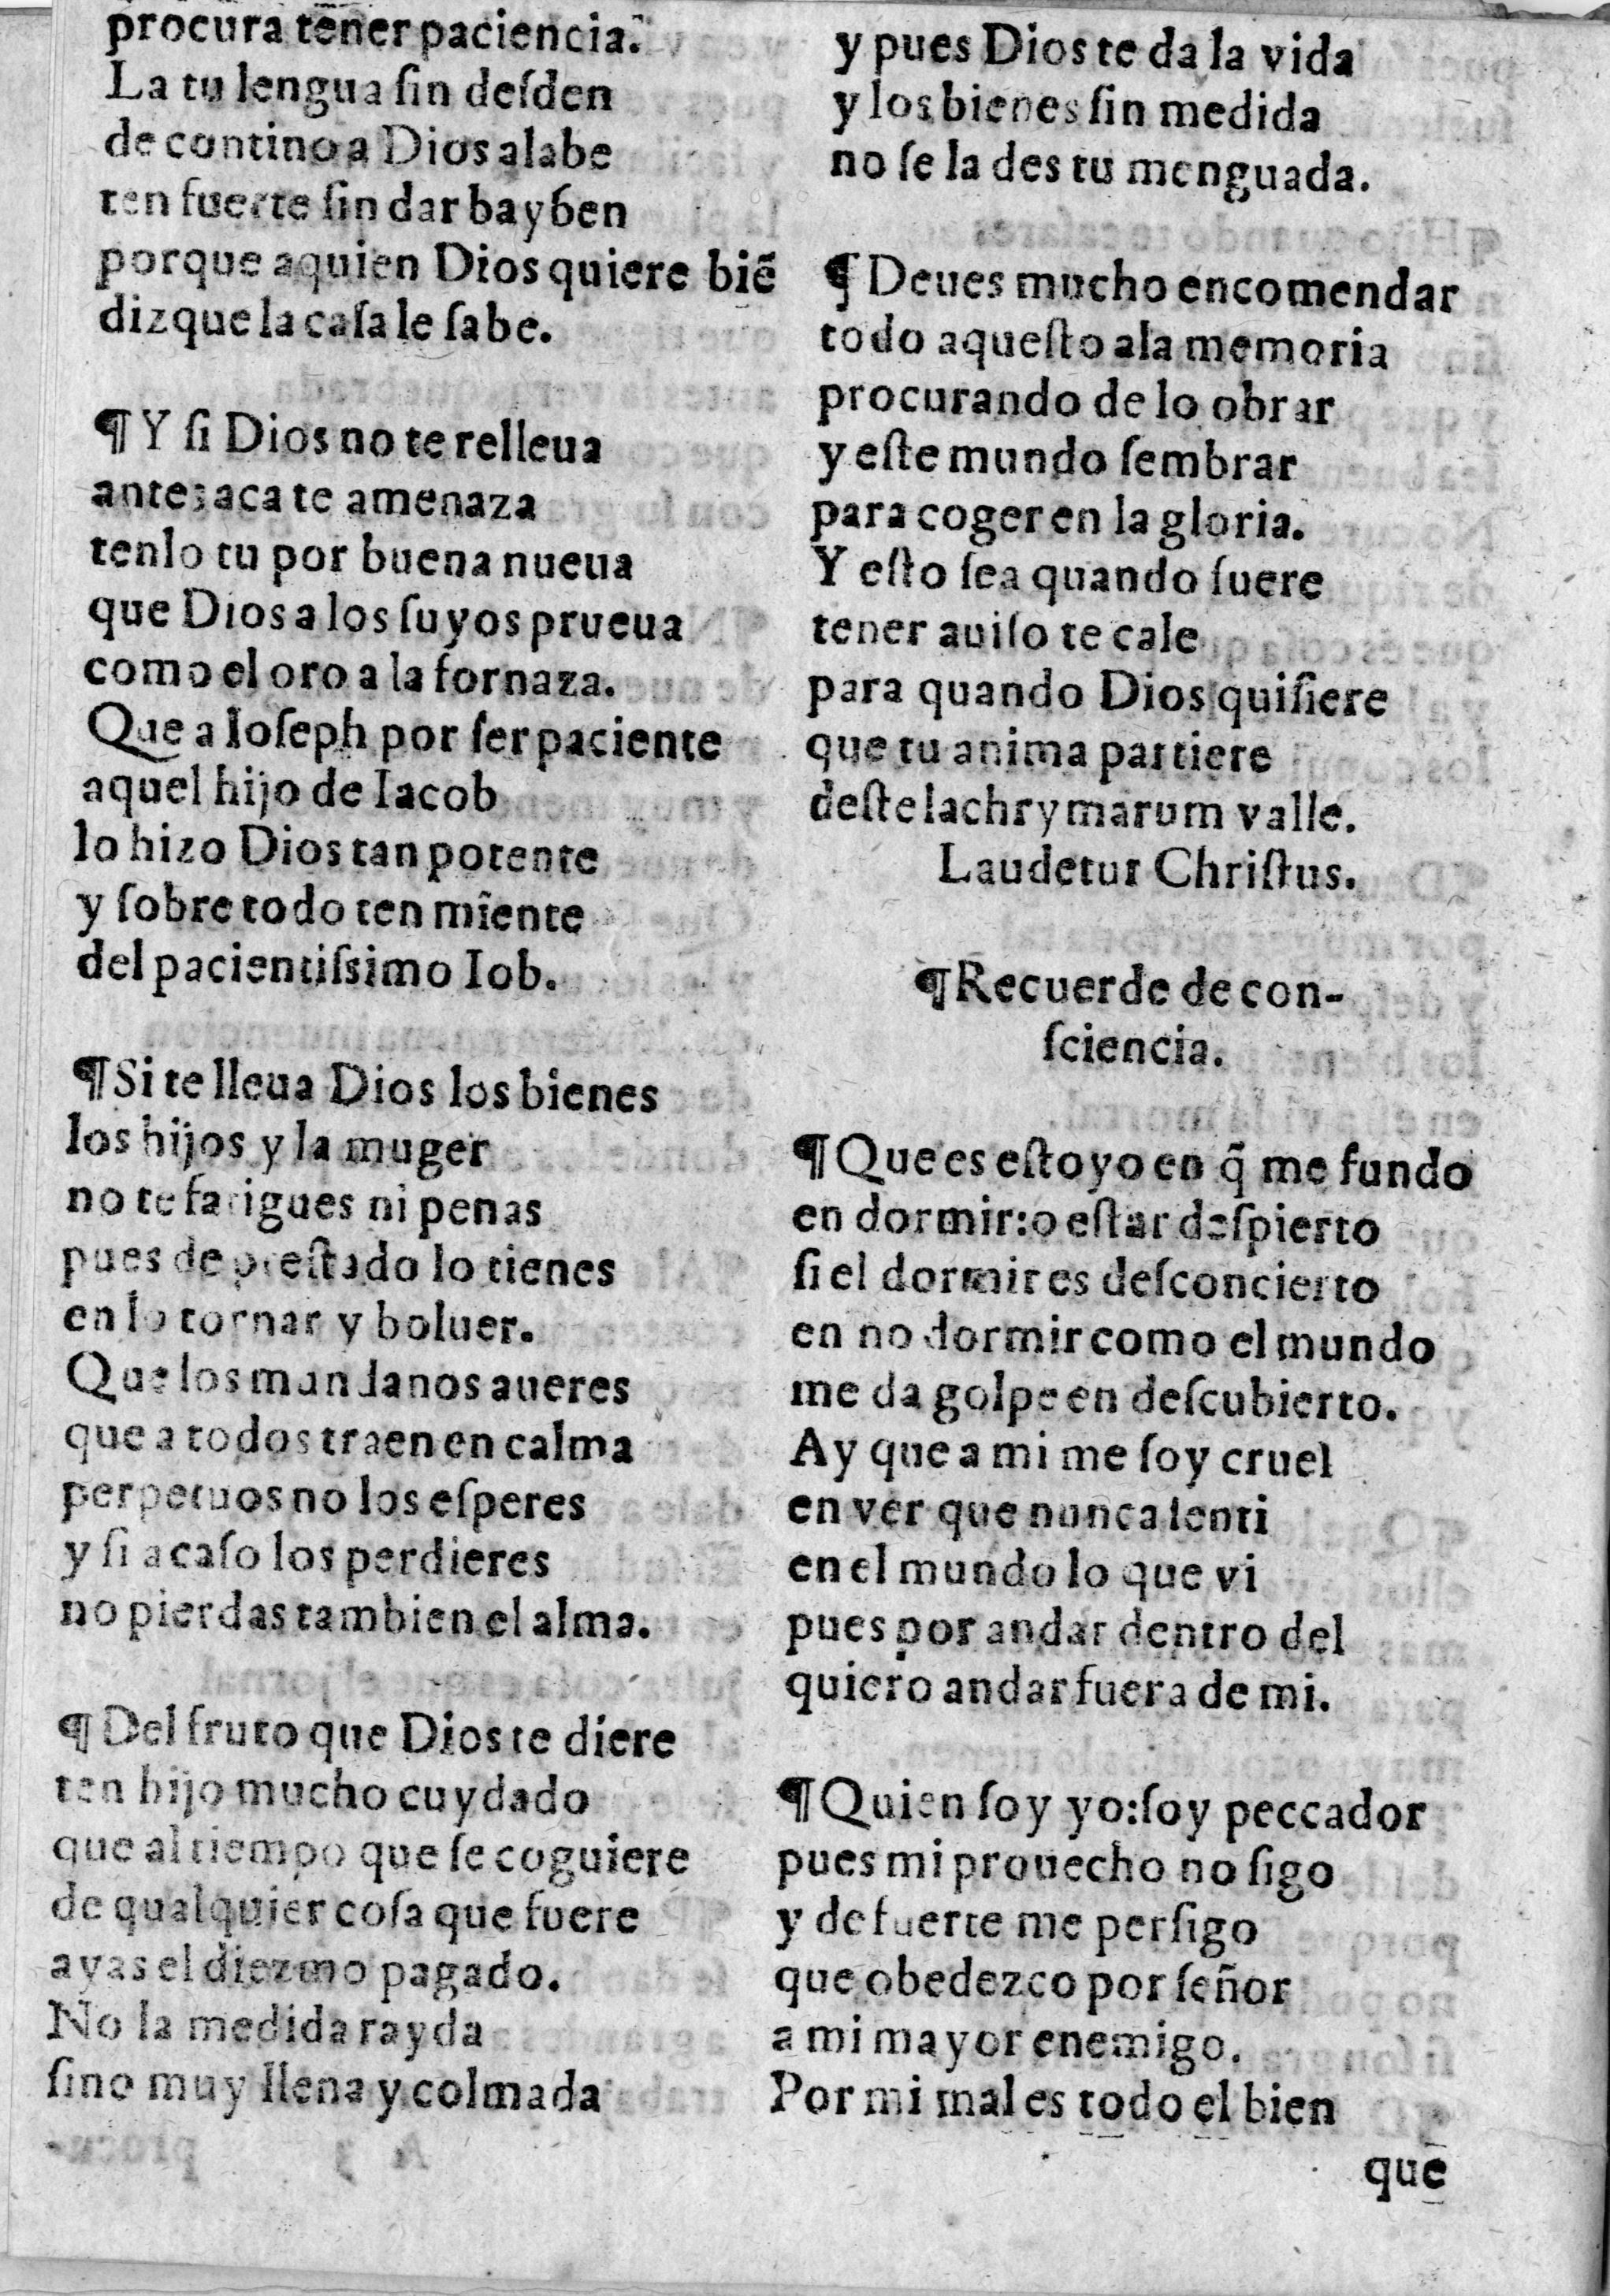 procura tener paciencia.
La tu lengua ſin deſden
de contino a Dios alabe
ten fuerte ſin dar bayben
porque aquien Dios quiere biẽ
dizque la caſa le ſabe.
¶ Y ſi Dios no te relleua
antes aca te amenaza
tenlo tu por buena nueua
que Dios a los ſuyos prueua
como el oro a la fornaza.
Que a Ioſeph por ſer paciente
aquel hijo de Iacob
lo hizo Dios tan potente
y ſobre todo ten miente
del pacientiſsimo Iob.
¶ Si te lleua Dios los bienes
los hijos y la muger
no te fatigues ni penas
pues de preſtado lo tienes
en lo tornar y boluer.
Que los mundanos aueres
que a todos traen en calma
perpetuos no los eſperes
y ſi acaſo los perdieres
no pierdas tambien el alma.
¶ Del fruto que Dios te diere
ten hijo mucho cuydado
que al tiempo que ſe coguiere
de qualquier coſa que fuere
ayas el diezmo pagado.
No la medida rayda
ſino muy llena y colmada
y pues Dios te da la vida
y los bienes ſin medida
no ſe la des tu menguada.
¶ Deues mucho encomendar
todo aqueſto ala memoria
procurando de lo obrar
y eſte mundo ſembrar
para coger en la gloria.
Y eſto ſea quando fuere
tener auiſo te cale
para quando Dios quiſiere
que tu anima partiere
deſte lachrymarum valle.
Laudetur Chriſtus.
¶ Recuerde de con-
ſciencia.
¶ Que es eſto yo en q̃ me fundo
en dormir:o eſtar deſpierto
ſi el dormir es deſconcierto
en no dormir como el mundo
me da golpe en deſcubierto.
Ay que a mi me ſoy cruel
en ver que nunca ſenti
en el mundo lo que vi
pues por andar dentro del
quiero andar fuera de mi.
¶ Quien ſoy yo:ſoy peccador
pues mi prouecho no ſigo
y de ſuerte me perſigo
que obedezco por ſeñor
a mi mayor enemigo.
Por mi mal es todo el bien
que